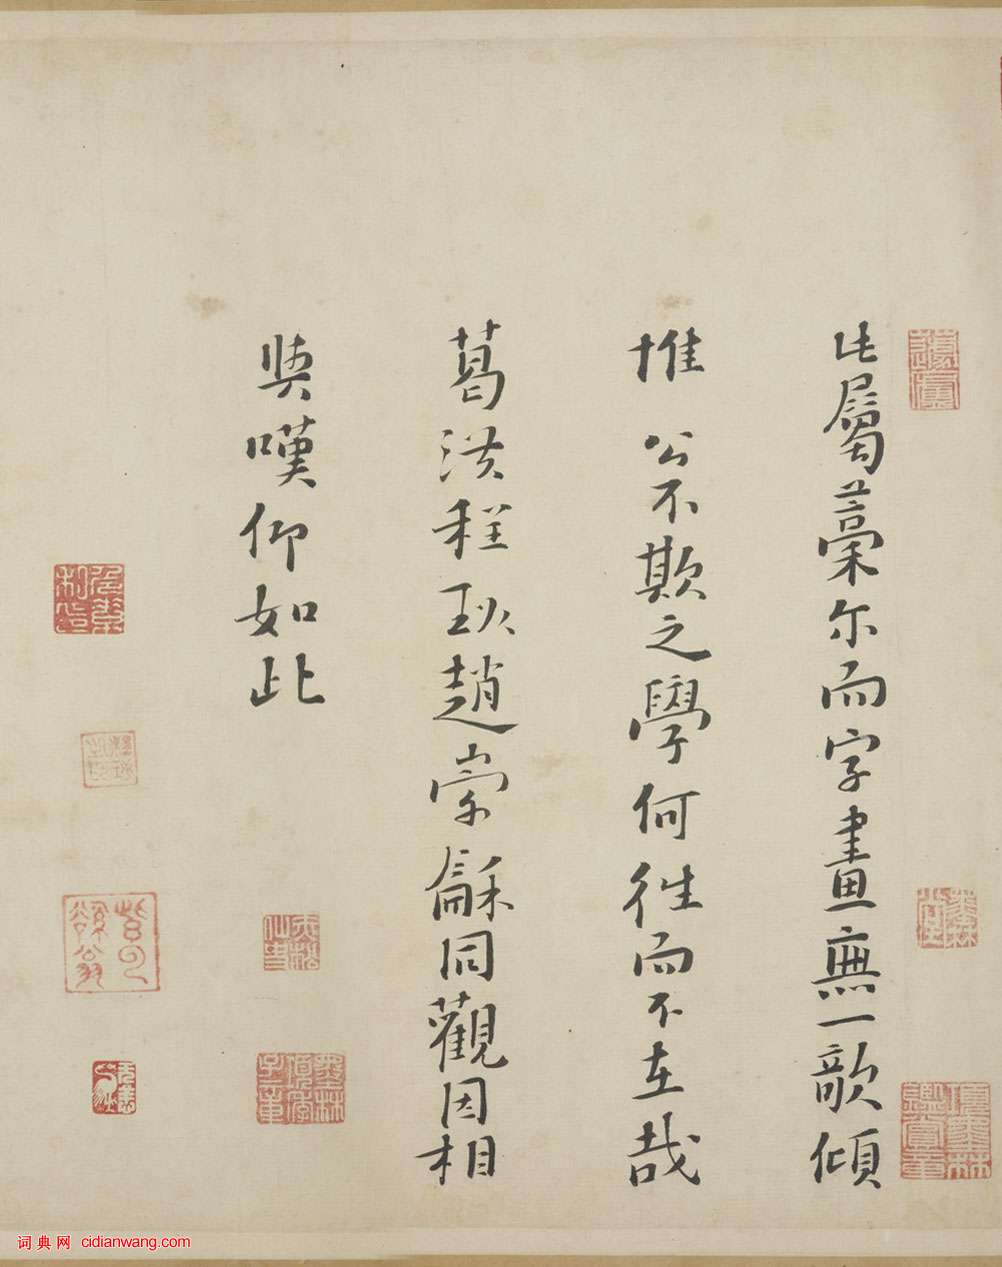 此屬藁尔而字畫無一欹傾
惟公不欺之學何往而不在哉
葛洪程珌趙崇龢同觀因相
與嘆仰如此
項墨林鑑賞章
词典网 cidianwang.com